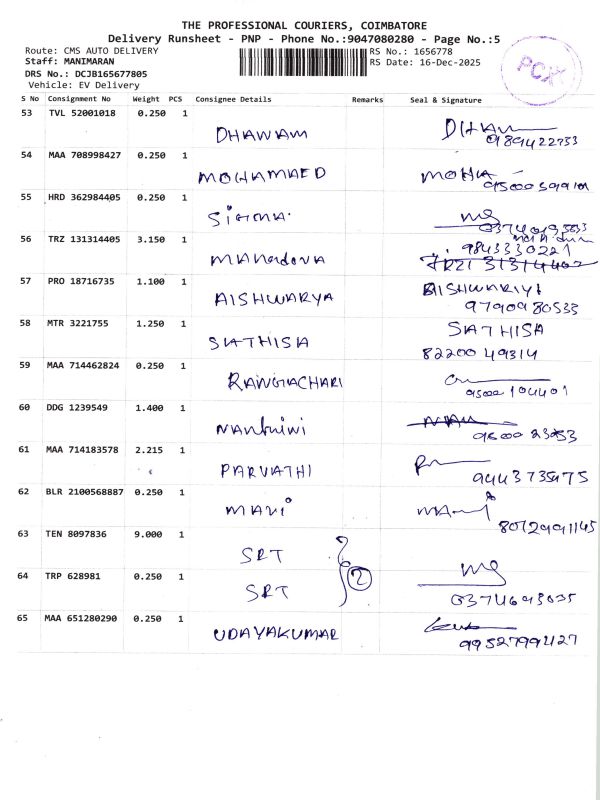 THE PROFESSIONAL COURIERS, COIMBATORE
Delivery Runsheet - PNP - Phone No.:9047080280 - Page No.:5
Route: CMS AUTO DELIVERY RS No.: 1656778
Staff: MANIMARAN RS Date: 16-Dec-2025
DRS No.: DCJB165677805
Vehicle: EV Delivery
PCX
S No Consignment No Weight PCS Consignee Details Remarks Seal & Signature
53 TVL 52001018 0.250 1 DHAWAM
9894422733
54 MAA 708998427 0.250 1 MOHAMAED
55 HRD 362984405 0.250 1
56 TRZ 131314405 3.150 1
9843330221
57 PRO 18716735 1.100 1 AISHWARYA AISHWARIYA
9790980533
58 MTR 3221755 1.250 1 SATHISH SATHISH
82200 49314
59 MAA 714462824 0.250 1 RANGACHARI
9500 104401
60 DDG 1239549 1.400 1 NANDHINI
61 MAA 714183578 2.215 1 PARVATHI
9443735975
62 BLR 2100568887 0.250 1 MANI MANI
63 TEN 8097836 9.000 1 SRT
64 TRP 628981 0.250 1 SRT 2
65 MAA 651280290 0.250 1 UDAYAKUMAR